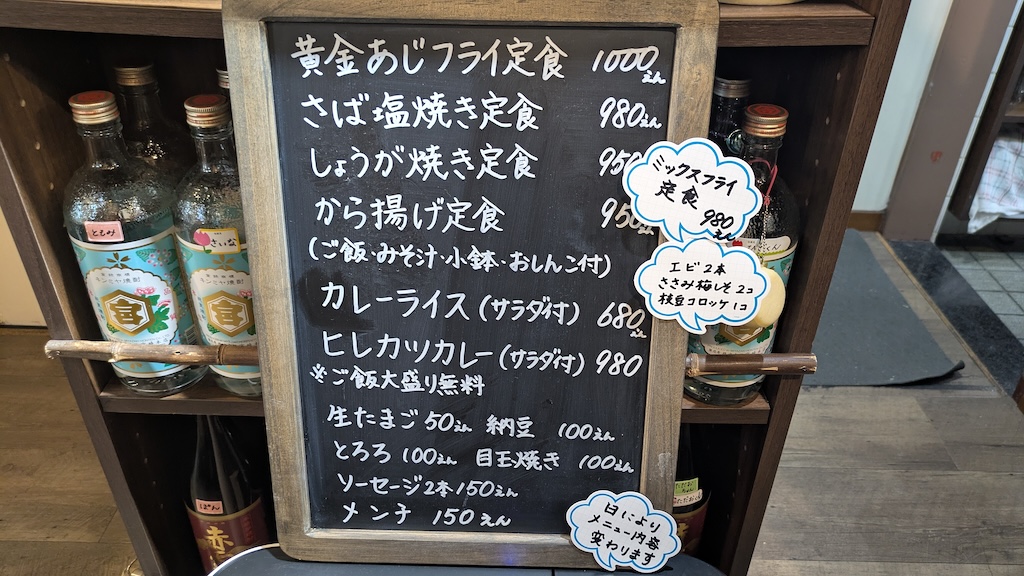 黄金あじフライ定食 1000えん
さば塩焼き定食 980えん
しょうが焼き定食 950
から揚げ定食 950えん
(ご飯・みそ汁・小鉢・おしんこ付)
カレーライス(サラダ付) 680えん
ヒレカツカレー(サラダ付) 980
※ご飯大盛り無料
生たまご 50えん 納豆 100えん
とろろ 100えん 目玉焼き 100えん
ソーセージ2本 150えん
メンチ 150えん
ミックスフライ
定食 980
エビ2本
ささみ梅しそ2コ
枝豆コロッケ1コ
日により
メニュー内容
変わります
ともみ
さいな
宮
宮
ぱん
赤